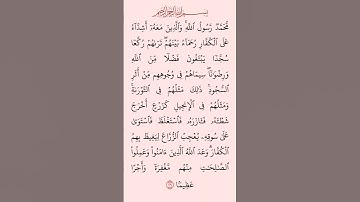 بسم الله الرحمن الرحيم
مُّحَمَّدٌ رَّسُولُ ٱللَّهِ وَٱلَّذِينَ مَعَهُۥٓ أَشِدَّآءُ
عَلَى ٱلْكُفَّارِ رُحَمَآءُ بَيْنَهُمْ تَرَىٰهُمْ رُكَّعًا
سُجَّدًا يَبْتَغُونَ فَضْلًا مِّنَ ٱللَّهِ
وَرِضْوَٰنًا سِيمَاهُمْ فِى وُجُوهِهِم مِّنْ أَثَرِ
ٱلسُّجُودِ ذَٰلِكَ مَثَلُهُمْ فِى ٱلتَّوْرَىٰةِ
وَمَثَلُهُمْ فِى ٱلْإِنجِيلِ كَزَرْعٍ أَخْرَجَ
شَطْـَٔهُۥ فَـَٔازَرَهُۥ فَٱسْتَغْلَظَ فَٱسْتَوَىٰ
عَلَىٰ سُوقِهِۦ يُعْجِبُ ٱلزُّرَّاعَ لِيَغِيظَ بِهِمُ
ٱلْكُفَّارَ وَعَدَ ٱللَّهُ ٱلَّذِينَ ءَامَنُوا۟ وَعَمِلُوا۟
ٱلصَّٰلِحَٰتِ مِنْهُم مَّغْفِرَةً وَأَجْرًا
عَظِيمًۢا